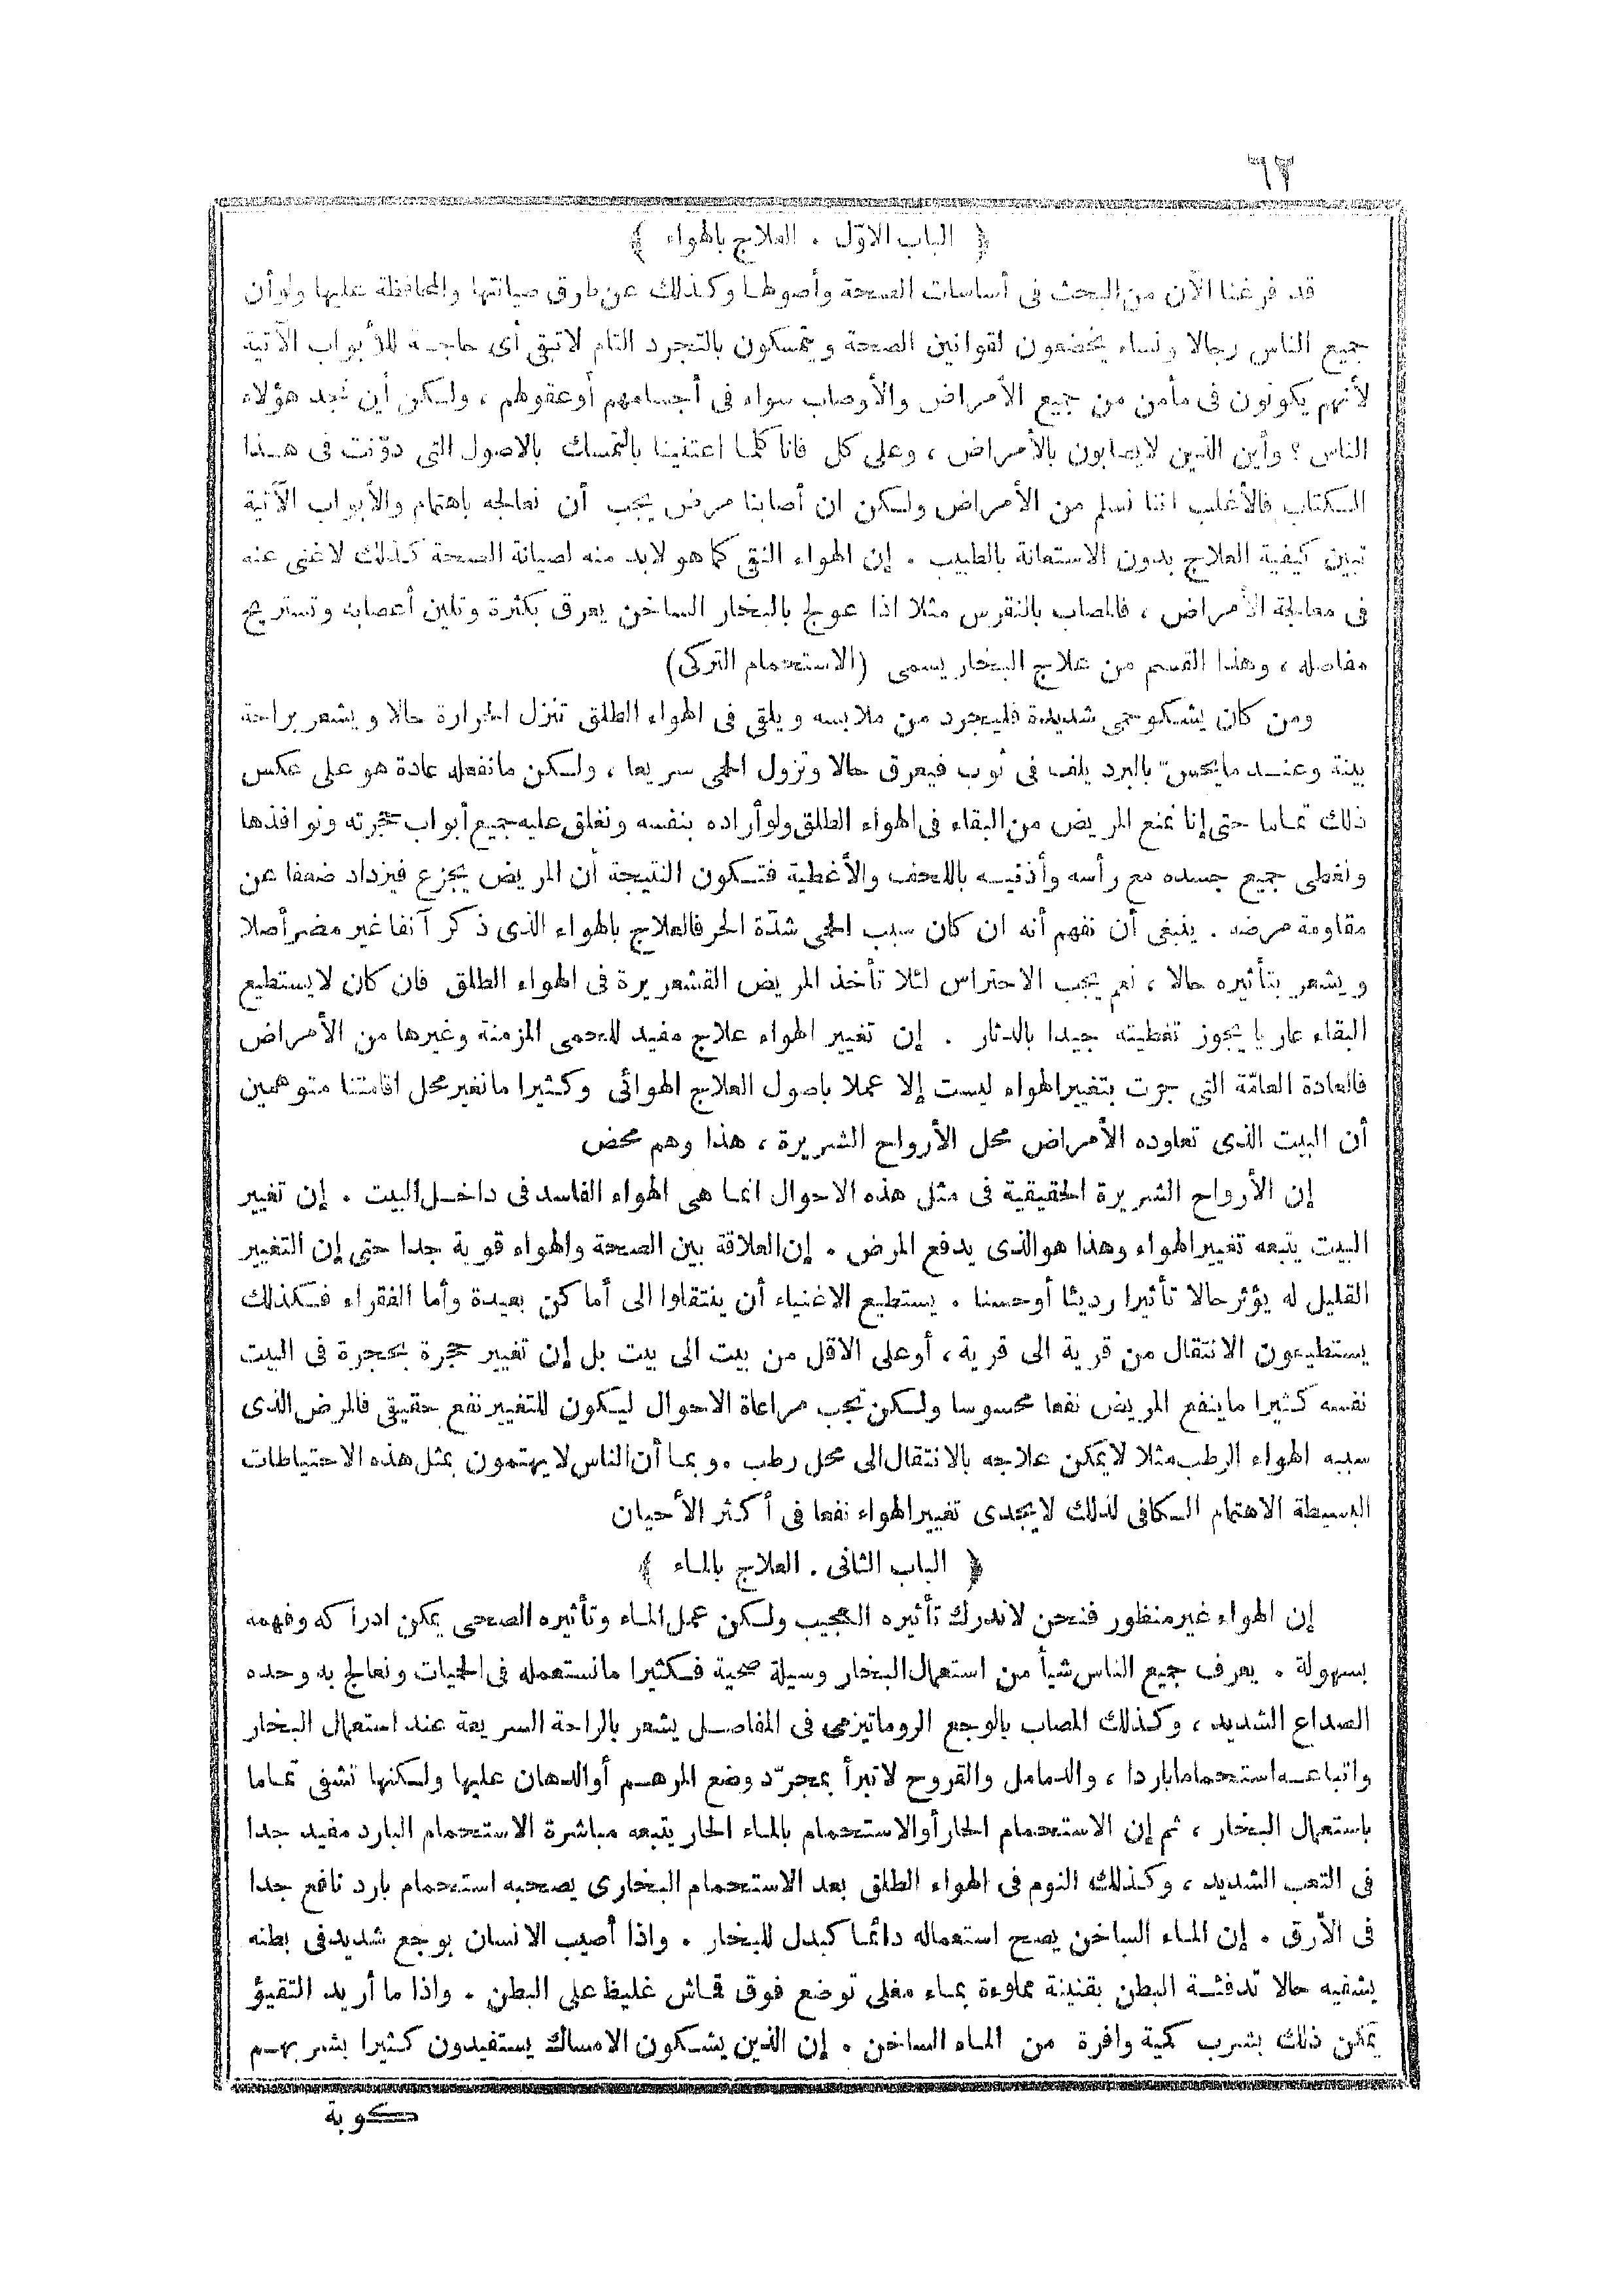 ٦٢
﴿ الباب الاوّل . العلاج بالهواء ﴾
قد فرغنا الآن من البحث فى أساسات الصحة وأصولها وكذلك عن طرق صيانتها والمحافظة عليها ولو أن
جميع الناس رجالا ونساء يخضعون لقوانين الصحة ويتمسكون بالتجرد التام لا تبقى أى حاجة للأبواب الآتية
لأنهم يكونون فى مأمن من جميع الأمراض والأوصاب سواء فى أجسامهم أو عقولهم ، ولكن أين نجد هؤلاء
الناس ؟ وأين الذين لا يصابون بالأمراض ، وعلى كل فانا كلما اعتنينا بالتمسك بالاصول التى دوّنت فى هذا
الكتاب فالأغلب اننا نسلم من الأمراض ولكن ان أصابنا مرض يجب أن نعالجه باهتمام والأبواب الآتية
تبين كيفية العلاج بدون الاستعانة بالطبيب . إن الهواء النقى كما هو لابد منه لصيانة الصحة كذلك لاغنى عنه
فى معالجة الأمراض ، فالمصاب بالنقرس مثلا اذا عولج بالبخار الساخن يعرق بكثرة وتلين أعصابه وتستريح
مفاصله ، وهذا القسم من علاج البخار يسمى (الاستحمام التركى)
ومن كان يشكو حمى شديدة فليتجرد من ملابسه ويلقى فى الهواء الطلق تنزل الحرارة حالا ويشعر براحة
بينة وعند ما يحسّ بالبرد يلف فى ثوب فيعرق حالا وتزول الحمى سريعا ، ولكن مانفعله عادة هو على عكس
ذلك تماما حتى إنا نمنع المريض من البقاء فى الهواء الطلق ولو أراده بنفسه ونغلق عليه جميع أبواب حجرته ونوافذها
ونغطى جميع جسده مع رأسه وأذنيه باللحف والأغطية فتكون النتيجة أن المريض يجزع فيزداد ضعفا عن
مقاومة مرضه . ينبغى أن نفهم أنه ان كان سبب الحمى شدّة الحر فالعلاج بالهواء الذى ذكر آنفا غير مضر أصلا
ويشعر بتأثيره حالا ، نعم يجب الاحتراس لئلا تأخذ المريض القشعريرة فى الهواء الطلق فان كان لا يستطيع
البقاء عاريا يجوز تغطيته جيدا بالدثار . إن تغيير الهواء علاج مفيد للحمى المزمنة وغيرها من الأمراض
فالعادة العامّة التى جرت بتغيير الهواء ليست إلا عملا باصول العلاج الهوائى وكثيرا مانغير محل اقامتنا متوهمين
أن البيت الذى تعاوده الأمراض محل الأرواح الشريرة ، هذا وهم محض
إن الأرواح الشريرة الحقيقية فى مثل هذه الاحوال انما هى الهواء الفاسد فى داخل البيت . إن تغيير
البيت يتبعه تغيير الهواء وهذا هو الذى يدفع المرض . إن العلاقة بين الصحة والهواء قوية جدا حتى إن التغيير
القليل له يؤثر حالا تأثيرا رديئا أو حسنا . يستطيع الاغنياء أن ينتقلوا الى أماكن بعيدة وأما الفقراء فكذلك
يستطيعون الانتقال من قرية الى قرية ، أو على الاقل من بيت الى بيت بل إن تغيير حجرة بحجرة فى البيت
نفسه كثيرا ما ينفع المريض نفعا محسوسا ولكن تجب مراعاة الاحوال ليكون للتغيير نفع حقيقى فالمرض الذى
سببه الهواء الرطب مثلا لا يمكن علاجه بالانتقال الى محل رطب . وبما أن الناس لا يهتمون بمثل هذه الاحتياطات
البسيطة الاهتمام الكافى لذلك لا يجدى تغيير الهواء نفعا فى أكثر الأحيان
﴿ الباب الثانى . العلاج بالماء ﴾
إن الهواء غير منظور فنحن لاندرك تأثيره العجيب ولكن عمل الماء وتأثيره الصحى يمكن ادراكه وفهمه
بسهولة . يعرف جميع الناس شيأ من استعمال البخار وسيلة صحية فكثيرا مانستعمله فى الحميات ونعالج به وحده
الصداع الشديد ، وكذلك المصاب بالوجع الروماتيزمى فى المفاصل يشعر بالراحة السريعة عند استعمال البخار
واتباعه استحماما باردا ، والدمامل والقروح لاتبرأ بمجرّد وضع المرهم أو الدهان عليها ولكنها تشفى تماما
باستعمال البخار ، ثم إن الاستحمام الحار أو الاستحمام بالماء الحار يتبعه مباشرة الاستحمام البارد مفيد جدا
فى التعب الشديد ، وكذلك النوم فى الهواء الطلق بعد الاستحمام البخارى يصحبه استحمام بارد نافع جدا
فى الأرق . إن الماء الساخن يصح استعماله دائما كبدل للبخار . واذا أصيب الانسان بوجع شديد فى بطنه
يشفيه حالا تدفئة البطن بقنينة مملوءة بماء مغلى توضع فوق قماش غليظ على البطن . واذا ما أريد التقيؤ
يمكن ذلك بشرب كمية وافرة من الماء الساخن . إن الذين يشكون الامساك يستفيدون كثيرا بشربهم
كوبة